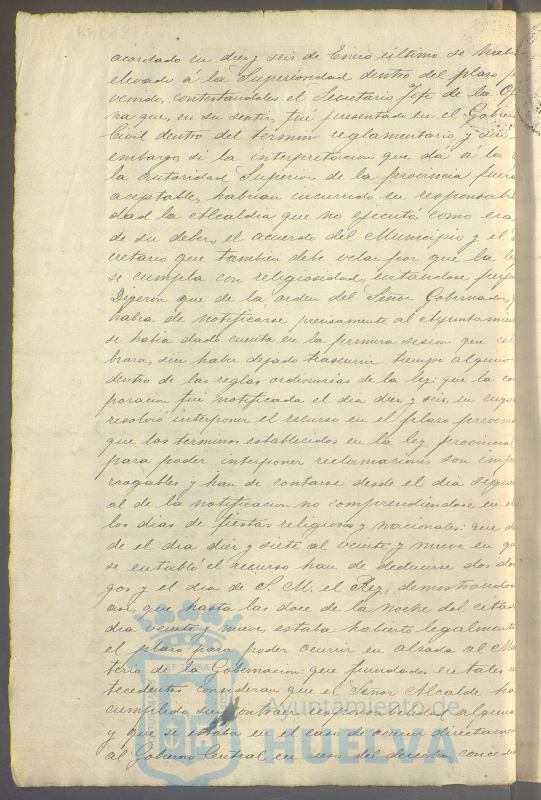 acordado en diez y seis de Enero último se hubi
elevado á la Superioridad dentro del plazo p
venido, contestandoles el Secretario Jefe de la Ofi
na que, en su sentir, fué presentado en el Gobier
Civil dentro del termino reglamentario, y sin
embargo, si la interpretacion que dá á la
la Autoridad Superior de la provincia fuera
aceptable, habrian incurrido en responsabi
dad la Alcaldia que no ejecutó, como era
de su deber, el acuerdo del Municipio y el S
cretario que tambien debe velar por que la ley
se cumpla con religiosidad, evitandose perju
Digeron que de la orden del Señor Gobernador, q
habia de notificarse precisamente al Ayuntamien
se habia dado cuenta en la primera sesion que cel
brara, sin haber dejado trascurrir tiempo alguno
dentro de las reglas ordinarias de la ley: que la co
poracion fué notificada el dia diez y seis, en cuyo
resolvió interponer el recurso en el plazo preveni
que los terminos establecidos en la ley provincial
para poder interponer reclamaciones son impr
rrogables y han de contarse desde el dia siguien
al de la notificacion no comprendiendose en el
los dias de fiestas religiosas y nacionales: que de
de el dia diez y siete al veinte y nueve en que
se entabló el recurso han de deducirse dos do
gos y el dia de S. M. el Rey, demostrandos
asi, que hasta las doce de la noche del citado
dia veinte y nueve, estaba habierto legalmente
el plazo para poder ocurrir en alzada al Mi
terio de la Gobernacion: que fundados en tales a
tecedentes consideran que el Señor Alcalde ha
cumplido sin contraer responsabilidad alguna
y que se estaba en el caso de ocurrir directamen
al Gobierno Central en uso del derecho concedi
Ayuntamiento de
HUELVA